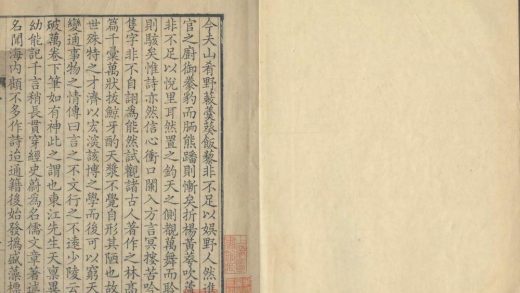 今夫山肴野蔌羹葵飯藜非不足以娛野人然進
官之廚御豢豹而胹熊蹯則慚矣折楊黃荂吹
非不足以悅里耳然置之鈞天之側觀萬舞而聆
則駭矣惟詩亦然信心衝口闌入方言冥摟苦吟
隻字非不自詡為能然試觀諸古人著作之林高
篇千彙萬狀拔鯨牙酌天漿不覺自形其陋也故
世殊特之才濟以宏演該博之學而後可以窮天
變通事物之情傳曰言之不文行之不遠少陵云
破萬卷下筆如有神此之謂也東江先生天稟異
幼能記千言稍長貫穿經史蔚為名儒文章著述
名聞海内顧不多作詩迨通籍後始發撝盛藻標